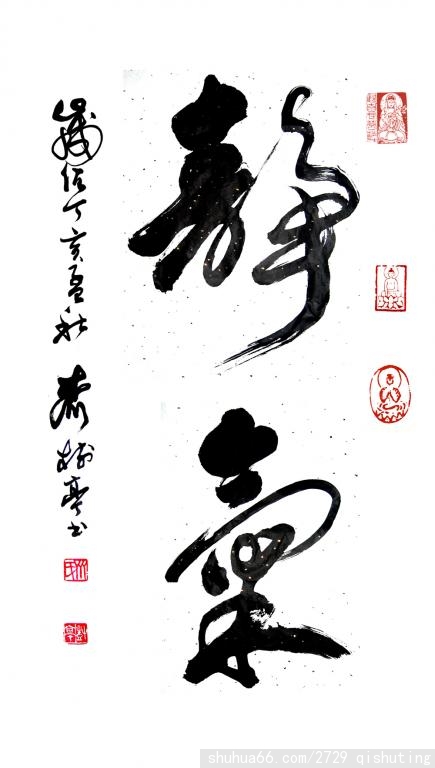 靜氣
歲值丁亥孟秋 樹亭书
shuhua66.com/2729 qishuting